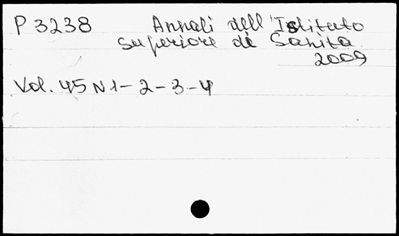 P 3238 Annali dell'Istituto
Superiore di Sanita
2009
Vol. 45 N 1-2-3-4